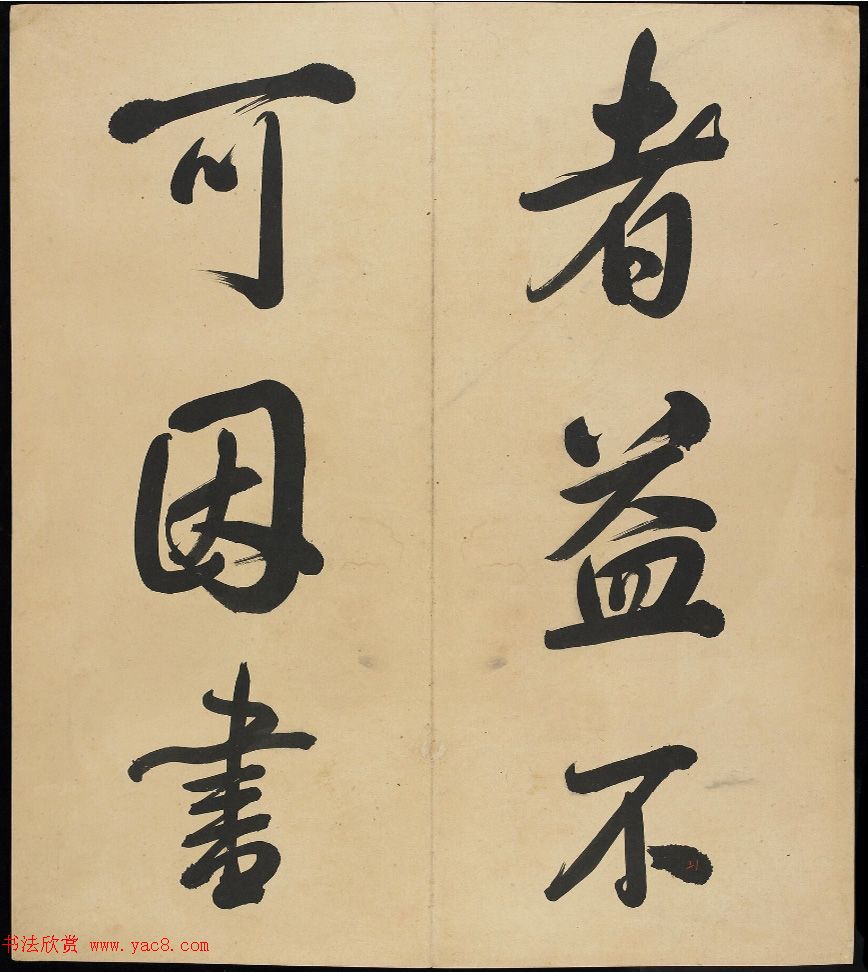 者益不
可因書
21
书法欣赏 www.yac8.com